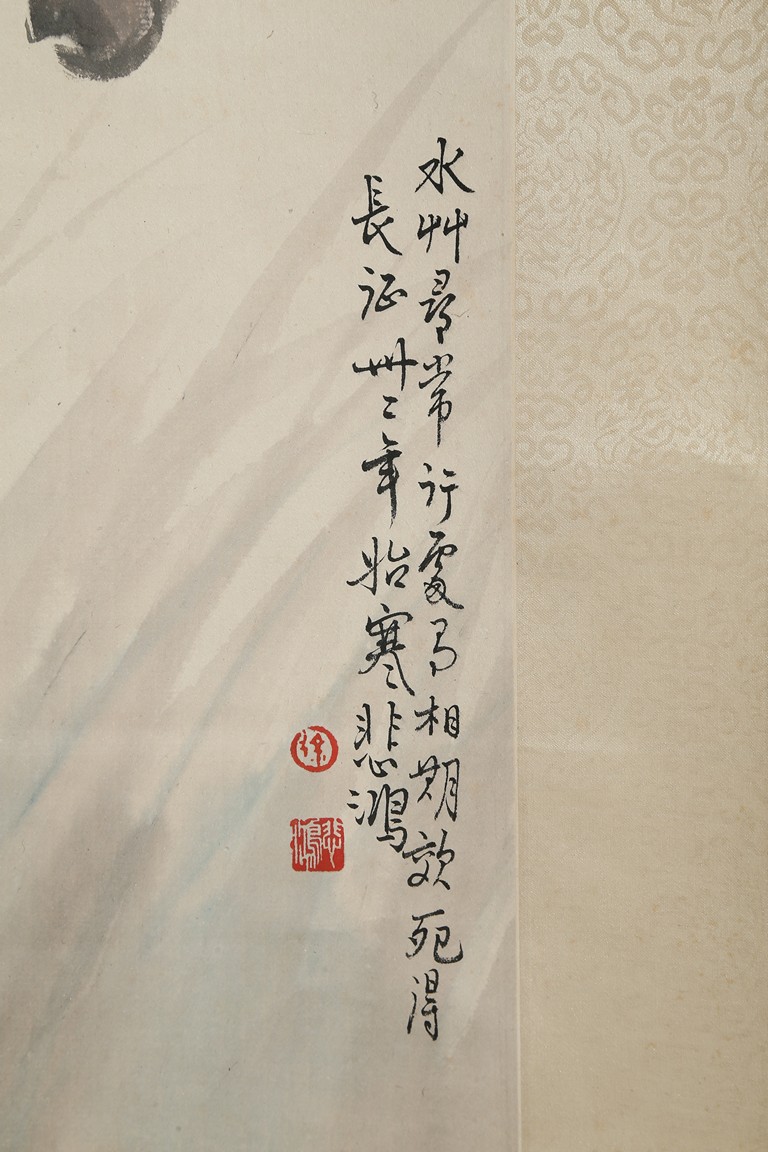 水艸尋常行處有相期效死得
長征卅二年始寒悲鴻
徐
悲鴻